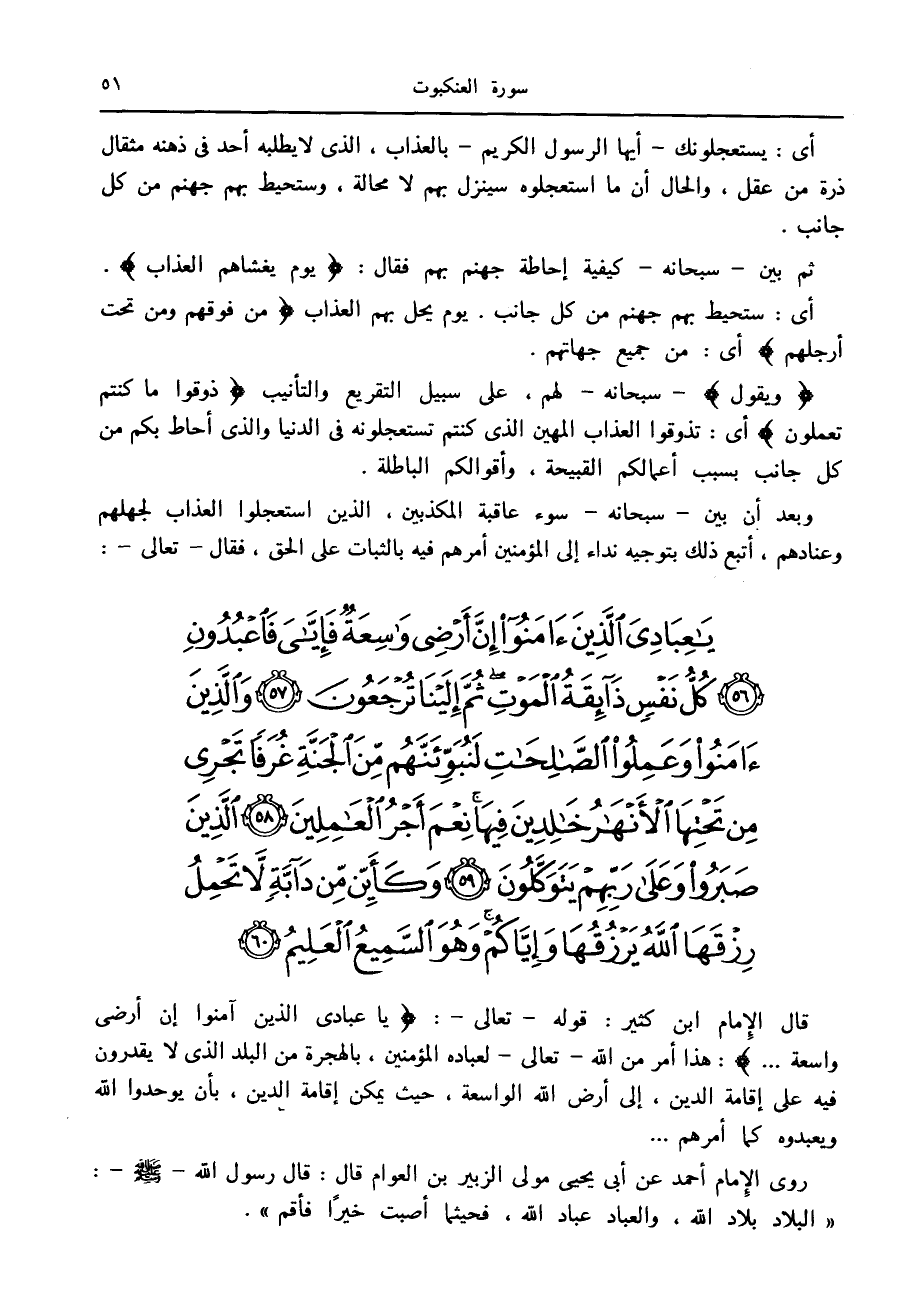 سورة العنكبوت ٥١
أى : يستعجلونك – أيها الرسول الكريم – بالعذاب ، الذى لايطلبه أحد فى ذهنه مثقال
ذرة من عقل ، والحال أن ما استعجلوه سينزل بهم لا محالة ، وستحيط بهم جهنم من كل
جانب .
ثم بين – سبحانه – كيفية إحاطة جهنم بهم فقال : ﴿ يوم يغشاهم العذاب ﴾ .
أى : ستحيط بهم جهنم من كل جانب . يوم يحل بهم العذاب ﴿ من فوقهم ومن تحت
أرجلهم ﴾ أى : من جميع جهاتهم .
﴿ ويقول ﴾ – سبحانه – لهم ، على سبيل التقريع والتأنيب ﴿ ذوقوا ما كنتم
تعملون ﴾ أى : تذوقوا العذاب المهين الذى كنتم تستعجلونه فى الدنيا والذى أحاط بكم من
كل جانب بسبب أعمالكم القبيحة ، وأقوالكم الباطلة .
وبعد أن بين – سبحانه – سوء عاقبة المكذبين ، الذين استعجلوا العذاب لجهلهم
وعنادهم ، أتبع ذلك بتوجيه نداء إلى المؤمنين أمرهم فيه بالثبات على الحق ، فقال – تعالى – :
يَٰعِبَادِىَ ٱلَّذِينَ ءَامَنُوٓا۟ إِنَّ أَرْضِى وَٰسِعَةٌ فَإِيَّٰىَ فَٱعْبُدُونِ
﴿٥٦﴾ كُلُّ نَفْسٍ ذَآئِقَةُ ٱلْمَوْتِ ۖ ثُمَّ إِلَيْنَا تُرْجَعُونَ ﴿٥٧﴾ وَٱلَّذِينَ
ءَامَنُوا۟ وَعَمِلُوا۟ ٱلصَّٰلِحَٰتِ لَنُبَوِّئَنَّهُم مِّنَ ٱلْجَنَّةِ غُرَفًا تَجْرِى
مِن تَحْتِهَا ٱلْأَنْهَٰرُ خَٰلِدِينَ فِيهَا ۚ نِعْمَ أَجْرُ ٱلْعَٰمِلِينَ ﴿٥٨﴾ ٱلَّذِينَ
صَبَرُوا۟ وَعَلَىٰ رَبِّهِمْ يَتَوَكَّلُونَ ﴿٥٩﴾ وَكَأَيِّن مِّن دَآبَّةٍ لَّا تَحْمِلُ
رِزْقَهَا ٱللَّهُ يَرْزُقُهَا وَإِيَّاكُمْ ۚ وَهُوَ ٱلسَّمِيعُ ٱلْعَلِيمُ ﴿٦٠﴾
قال الإمام ابن كثير : قوله – تعالى – : ﴿ يا عبادى الذين آمنوا إن أرضى
واسعة ... ﴾ : هذا أمر من الله – تعالى – لعباده المؤمنين ، بالهجرة من البلد الذى لا يقدرون
فيه على إقامة الدين ، إلى أرض الله الواسعة ، حيث يمكن إقامة الدين ، بأن يوحدوا الله
ويعبدوه كما أمرهم ...
روى الإمام أحمد عن أبى يحيى مولى الزبير بن العوام قال : قال رسول الله – ﷺ – :
« البلاد بلاد الله ، والعباد عباد الله ، فحيثما أصبت خيرًا فأقم » .